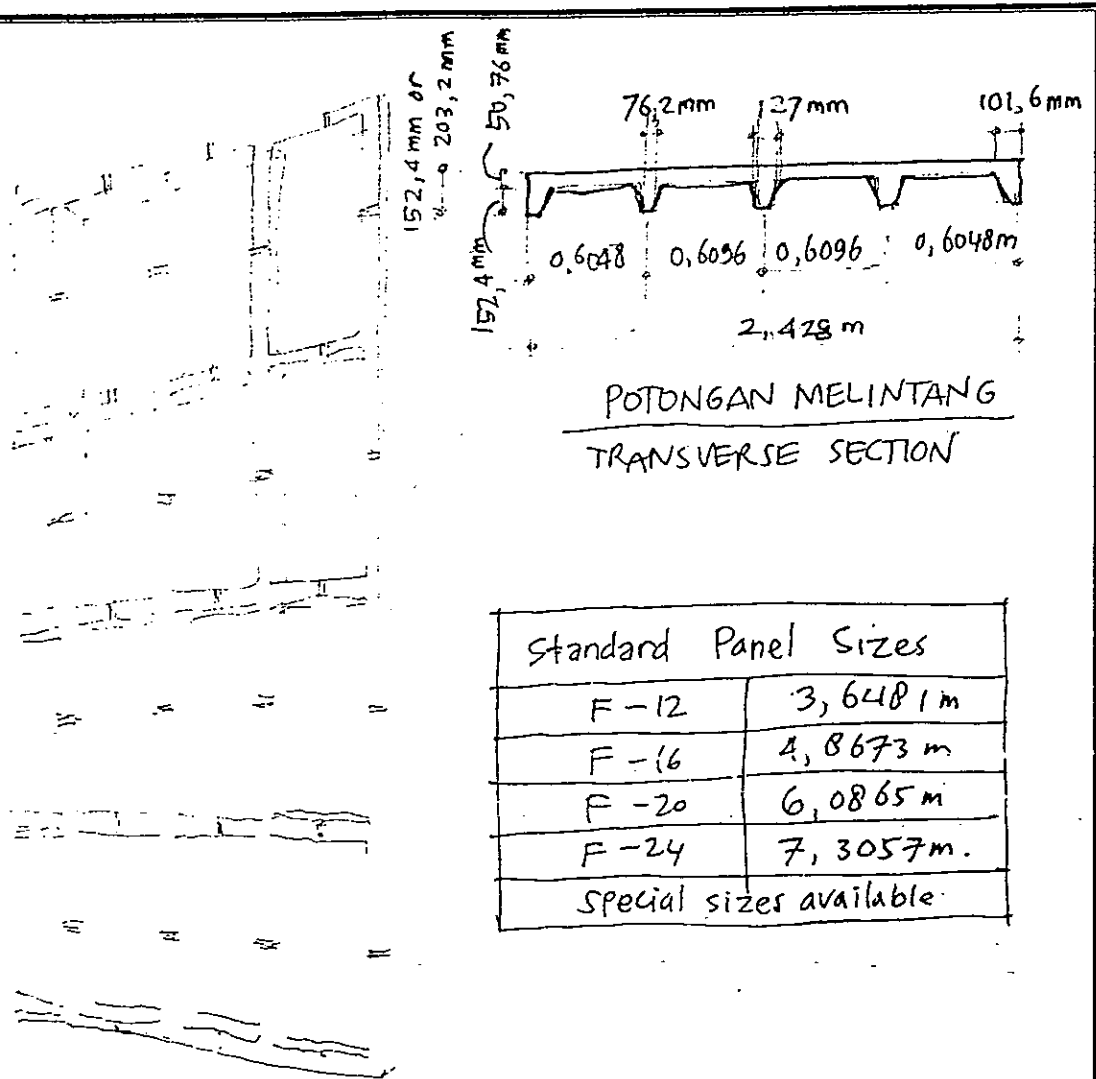 152,4 mm or
203,2 mm
50,76 mm
152,4 mm
76,2 mm
127 mm
101,6 mm
0,6048
0,6096
0,6096
0,6048 m
2,428 m
POTONGAN MELINTANG
TRANSVERSE SECTION
Standard Panel Sizes
F-12 3,6481 m
F-16 4,8673 m
F-20 6,0865 m
F-24 7,3057 m.
Special sizes available